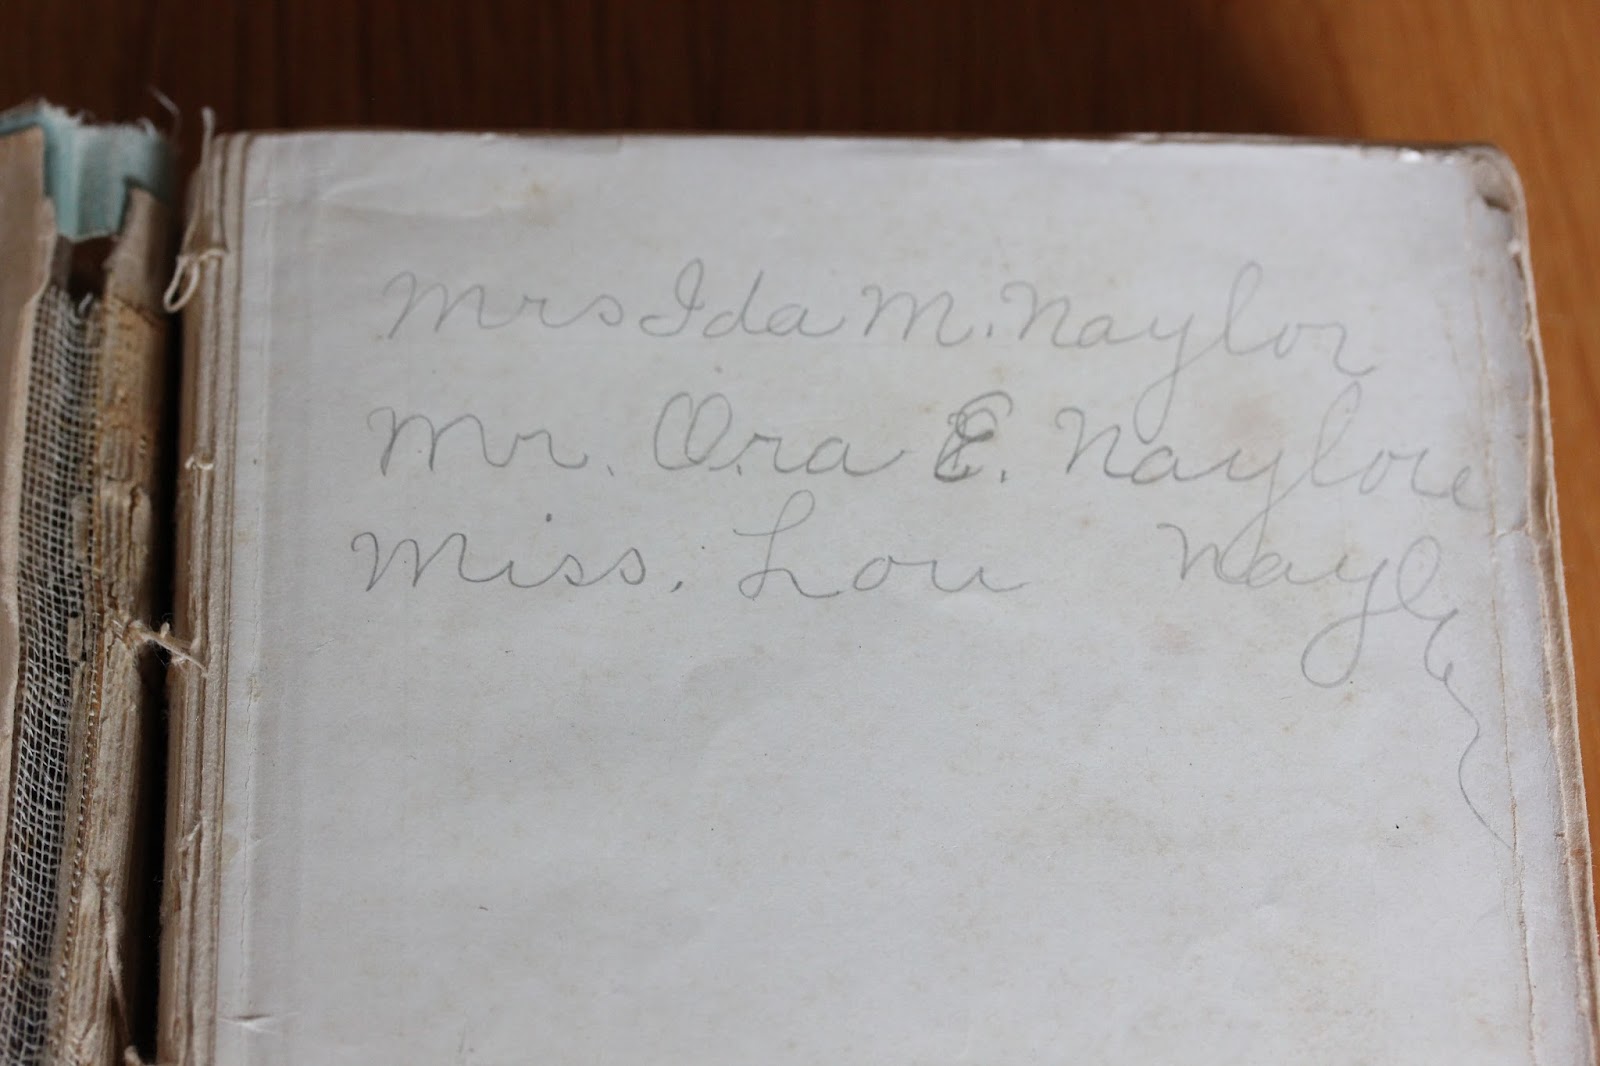 Mrs Ida M. Naylor
Mr. Ora E. Naylor
Miss. Lou Naylor